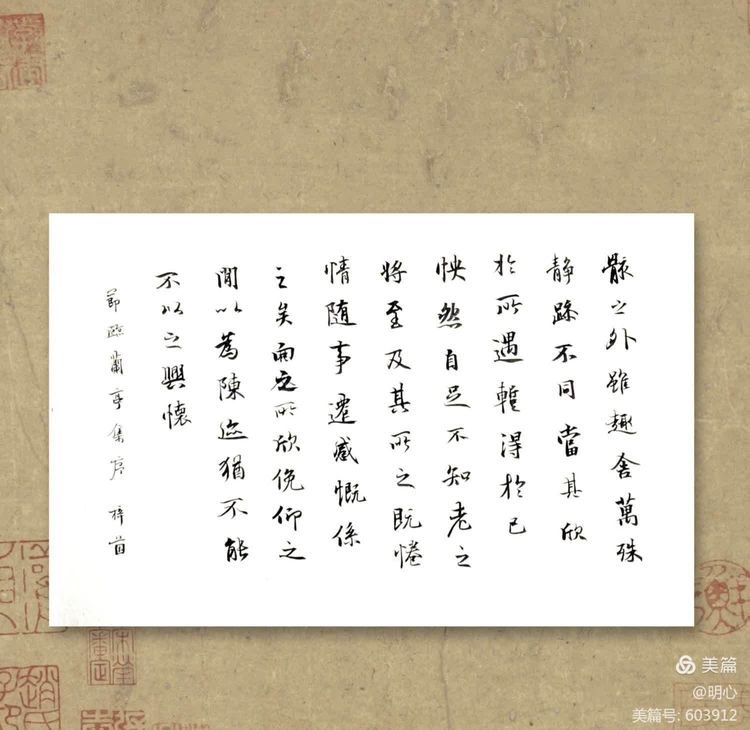 骸之外雖趣舍萬殊
静躁不同當其欣
於所遇蹔得於己
怏然自足不知老之
將至及其所之既惓
情随事遷感慨係
之矣向之所欣俛仰之
閒以為陳迹猶不能
不以之興懷
節臨蘭亭集序
美篇
@明心
美篇号: 603912